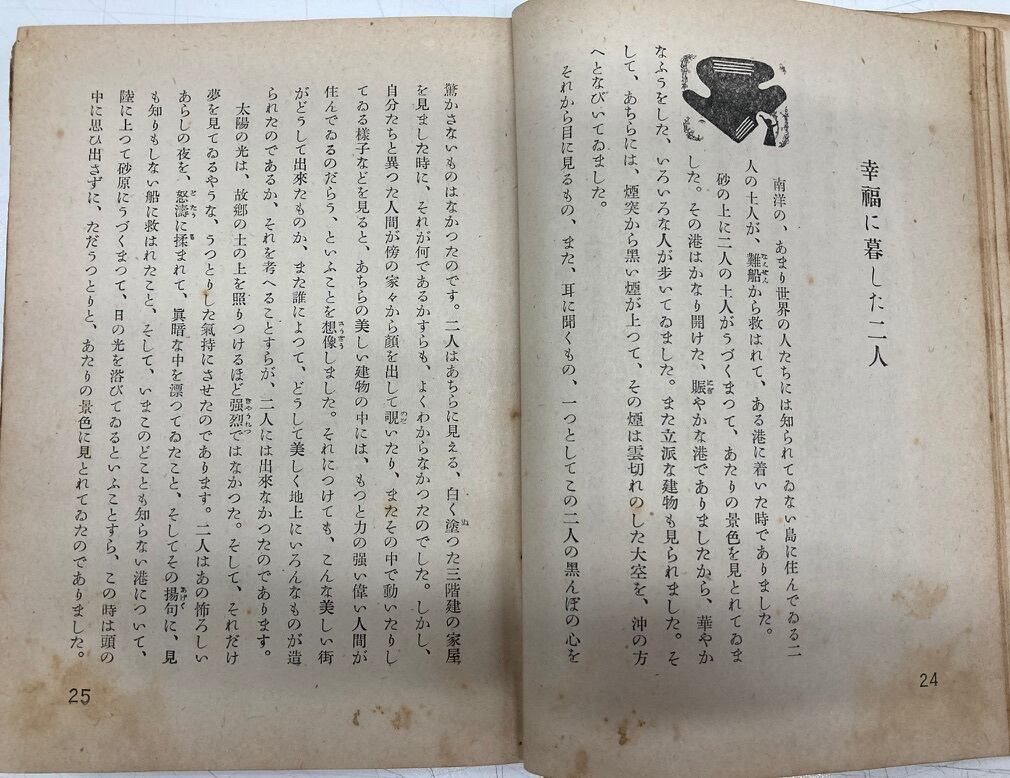 幸福に暮した二人
南洋の、あまり世界の人たちには知られてゐない島に住んでゐる二
人の土人が、難船から救はれて、ある港に着いた時でありました。
砂の上に二人の土人がうづくまつて、あたりの景色を見とれてゐま
した。その港はかなり開けた、賑やかな港でありましたから、華やか
なふうをした、いろいろな人が歩いてゐました。また立派な建物も見られました。そ
して、あちらには、煙突から黒い煙が上つて、その煙は雲切れのした大空を、沖の方
へとなびいてゐました。
それから目に見るもの、また、耳に聞くもの、一つとしてこの二人の黒んぼの心を
24
驚かさないものはなかつたのです。二人はあちらに見える、白く塗つた三階建の家屋
を見ました時に、それが何であるかすらも、よくわからなかつたのでした。しかし、
自分たちと異つた人間が傍の家々から顔を出して覗いたり、またその中で動いたりし
てゐる様子などを見ると、あちらの美しい建物の中には、もつと力の强い偉い人間が
住んでゐるのだらう、といふことを想像しました。それにつけても、こんな美しい街
がどうして出來たものか、また誰によつて、どうして美しく地上にいろんなものが造
られたのであるか、それを考へることすらが、二人には出來なかつたのであります。
太陽の光は、故鄕の土の上を照りつけるほど强烈ではなかつた。そして、それだけ
夢を見てゐるやうな、うつとりした氣持にさせたのであります。二人はあの怖ろしい
あらしの夜を、怒濤に揉まれて、眞暗な中を漂つてゐたこと、そしてその揚句に、見
も知りもしない船に救はれたこと、そして、いまこのどことも知らない港について、
陸に上つて砂原にうづくまつて、日の光を浴びてゐるといふことすら、この時は頭の
中に思ひ出さずに、ただうつとりと、あたりの景色に見とれてゐたのでありました。
25